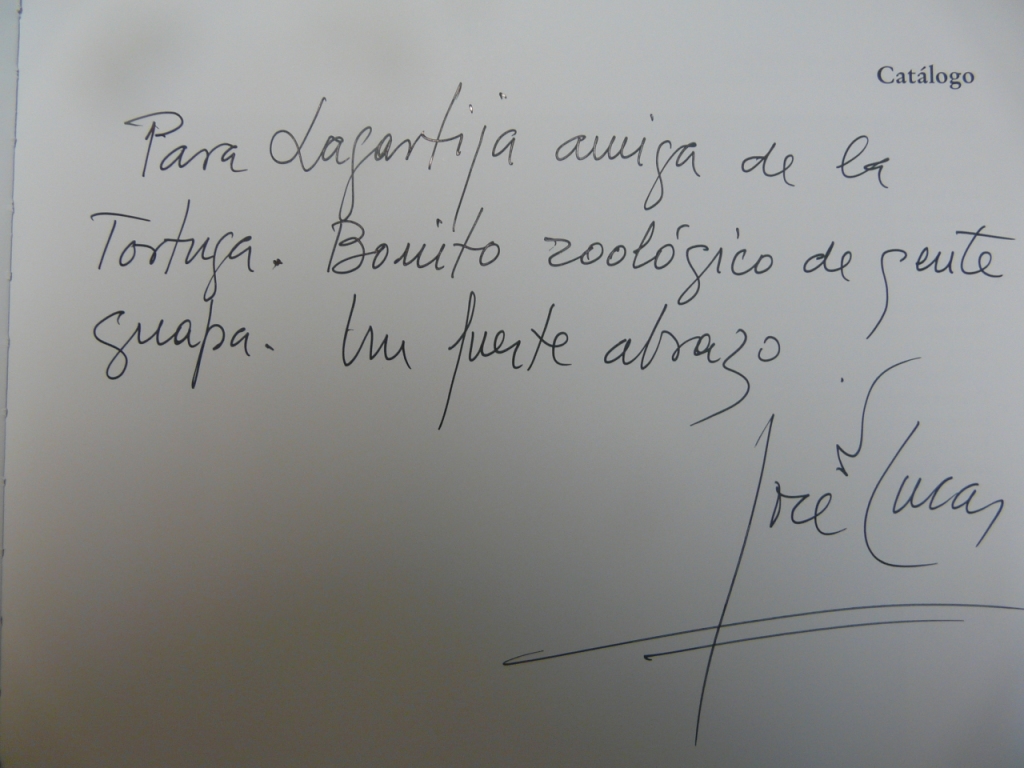 Catálogo
Para Lagartija amiga de la
Tortuga. Bonito zoológico de gente
guapa. Un fuerte abrazo
José Lucas